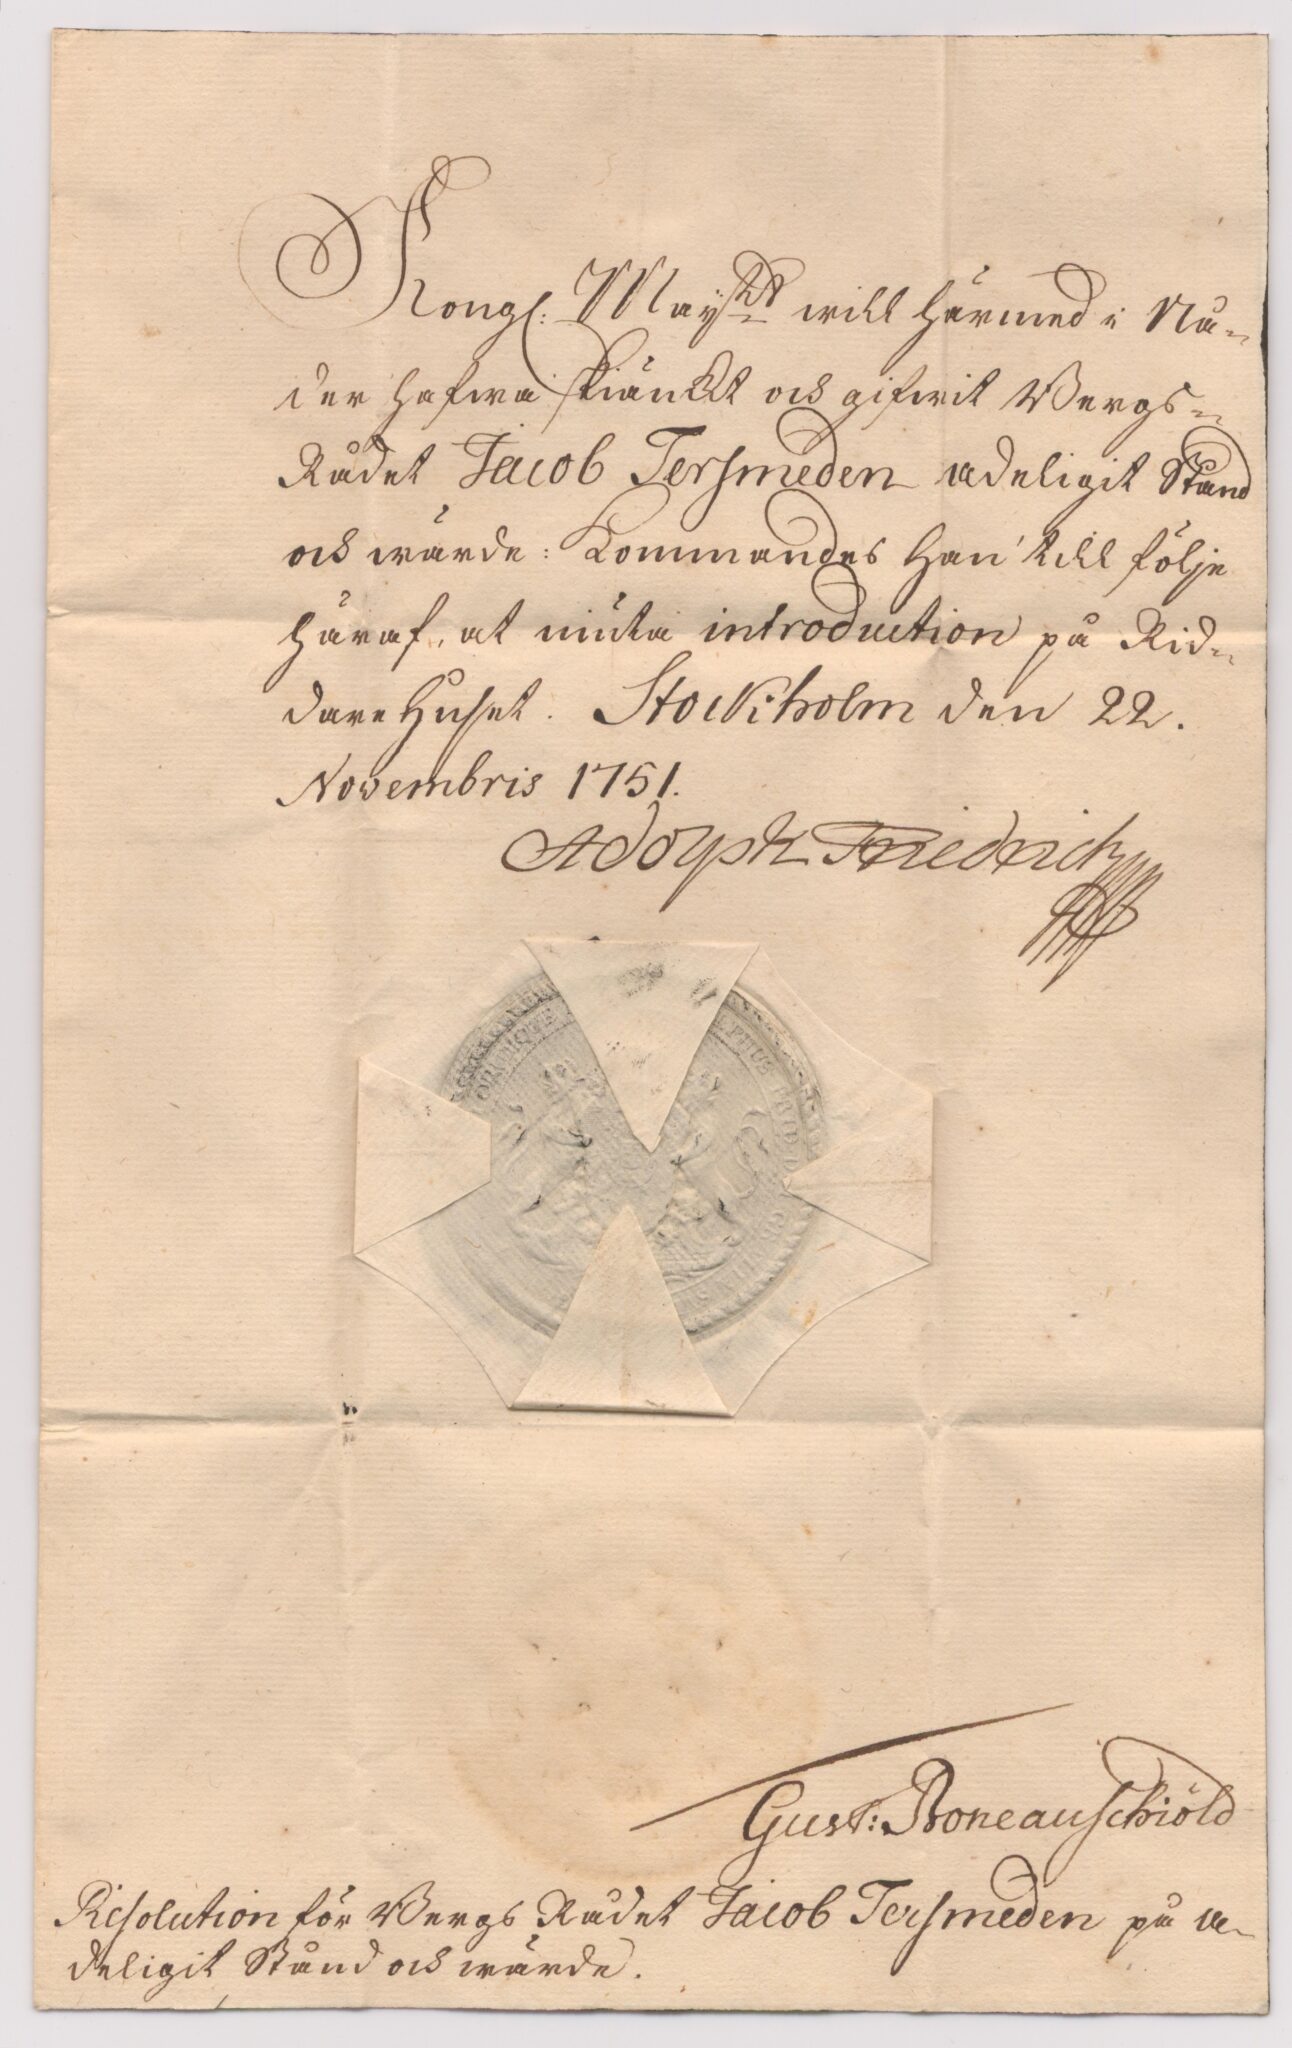 Kongl: May:tt will härmed i Nå-
der hafwa skiänckt och gifwit Bergs-
Rådet Jacob Tersmeden adeligit Stånd
och wärde: kommandes han till följe
häraf, at niuta introduction på Rid-
dareHuset. Stockholm den 22.
Novembris 1751.
Adolph Friedrich
PHUS FRID
Gust: Boneauschiöld
Resolution för Bergs Rådet Jacob Tersmeden på a-
deligit Stånd och wärde.